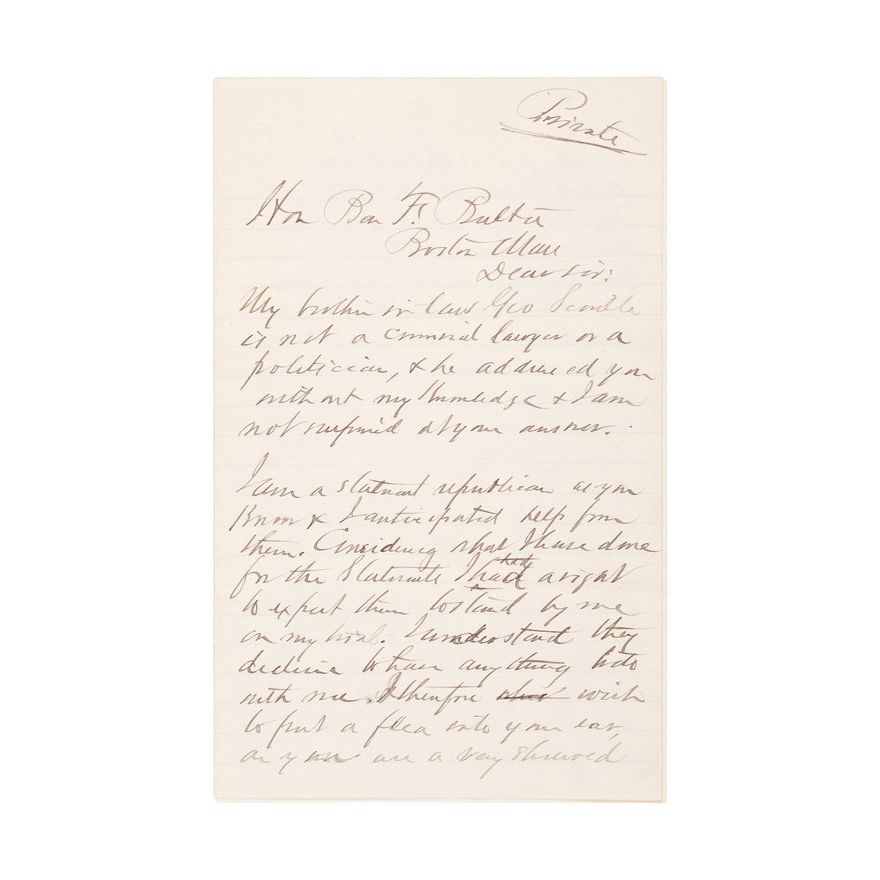 Private
Hon Ben F. Butler
Boston Mass
Dear sir:
My brother in law Geo Scoville
is not a criminal lawyer or a
politician, & he addressed you
without my knowledge & I am
not surprised at your answer.
I am a stalwart republican as you
know & I anticipated help from
them. Considering what I have done
for the Stalwarts I had a right
to expect them to stand by me
on my trial. I understand they
decline to have anything to do
with me. I therefore wish
to put a flea into your ear,
as you are a very shrewd